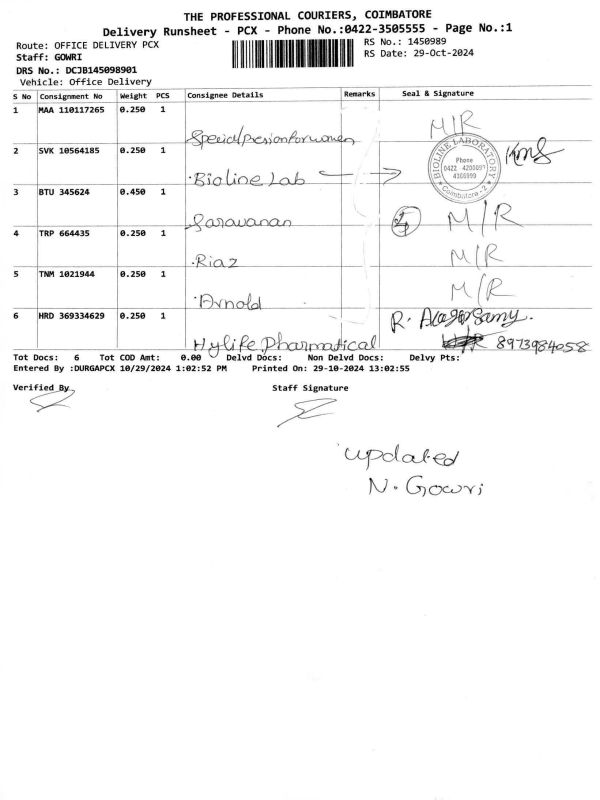 THE PROFESSIONAL COURIERS, COIMBATORE
Delivery Runsheet - PCX - Phone No.:0422-3505555 - Page No.:1
Route: OFFICE DELIVERY PCX
RS No.: 1450989
Staff: GOWRI
RS Date: 29-Oct-2024
DRS No.: DCJB145098901
Vehicle: Office Delivery
S No Consignment No Weight PCS Consignee Details Remarks Seal & Signature
1 MAA 110117265 0.250 1
M/R
2 SVK 10564185 0.250 1
BIOLINE LABORATORY
Phone
0422 4200097
4366999
Coimbatore - 2
Bioline Lab
3 BTU 345624 0.450 1
Saravanan M/R
4 TRP 664435 0.250 1
Riaz M/R
5 TNM 1021944 0.250 1
Arnold M/R
6 HRD 369334629 0.250 1
Hylife Pharmatical 8973984058
Tot Docs: 6 Tot COD Amt: 0.00 Delvd Docs: Non Delvd Docs: Delvy Pts:
Entered By :DURGAPCX 10/29/2024 1:02:52 PM Printed On: 29-10-2024 13:02:55
Verified By Staff Signature
updated
N. Gowri